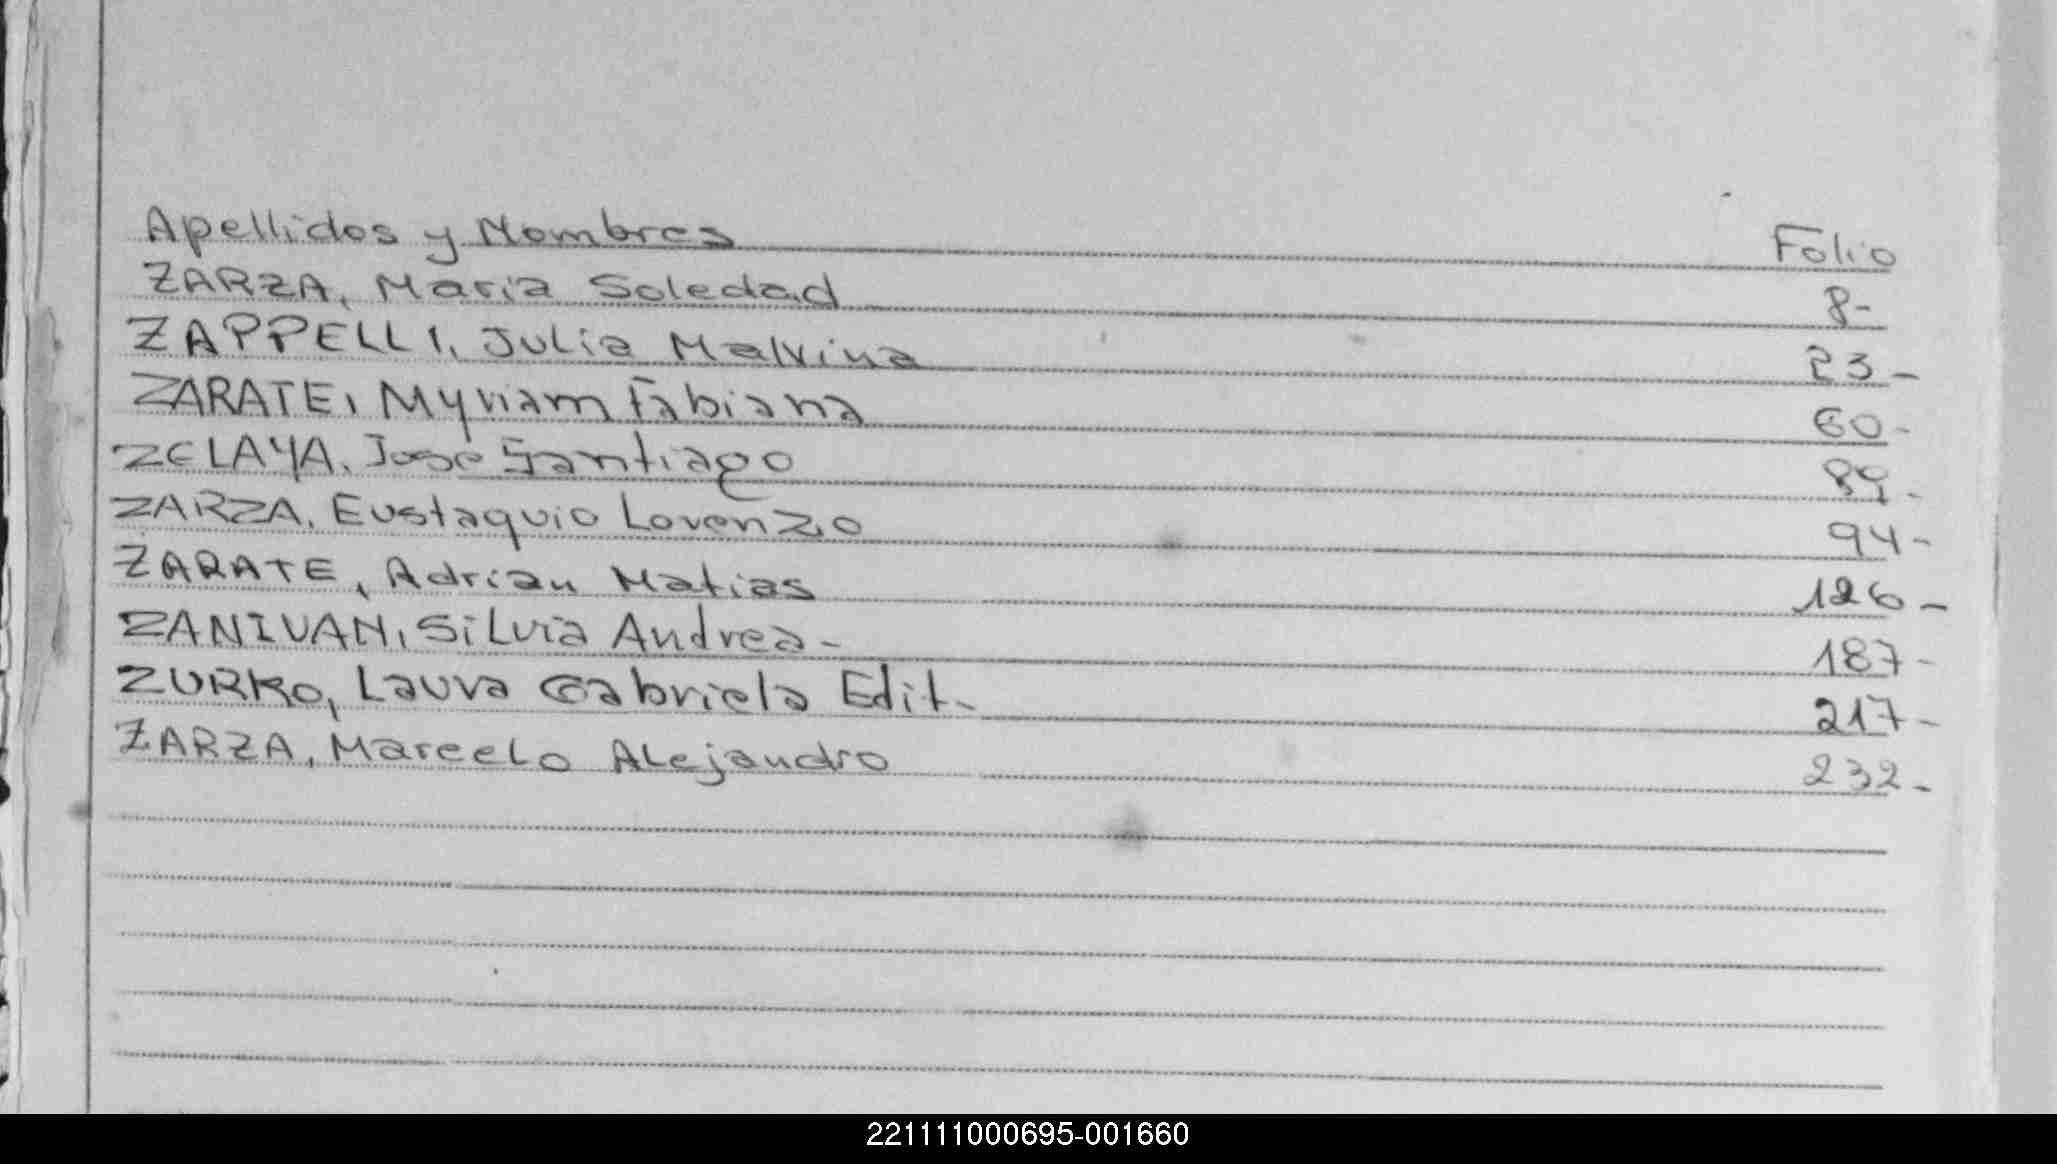 Apellidos y Nombres Folio
ZARZA, Maria Soledad 8-
ZAPPELLI, Julia Malvina 23-
ZARATE, Myriam Fabiana 60-
ZELAYA, Jose Santiago 89-
ZARZA, Eustaquio Lorenzo 94-
ZARATE, Adrian Matias 126-
ZANIVAN, Silvia Andrea- 187-
ZURKO, Laura Gabriela Edit- 217-
ZARZA, Marcelo Alejandro 232-
221111000695-001660